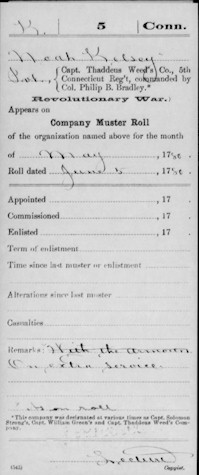 K. 5 Conn.
Noah Kelsey
Pvt., Capt. Thaddeus Weed's Co., 5th
Connecticut Reg't, commanded by
Col. Philip B. Bradley.*
(Revolutionary War.)
Appears on
Company Muster Roll
of the organization named above for the month
of May, 1780.
Roll dated June 5, 1780.
Appointed, 17 .
Commissioned, 17 .
Enlisted, 17 .
Term of enlistment
Time since last muster or enlistment
Alterations since last muster
Casualties
Remarks: With the
On extra service.
on roll
*This company was designated at various times as Capt. Solomon
Strong's, Capt. William Green's and Capt. Thaddeus Weed's Com-
pany.
(545)
Copyist.